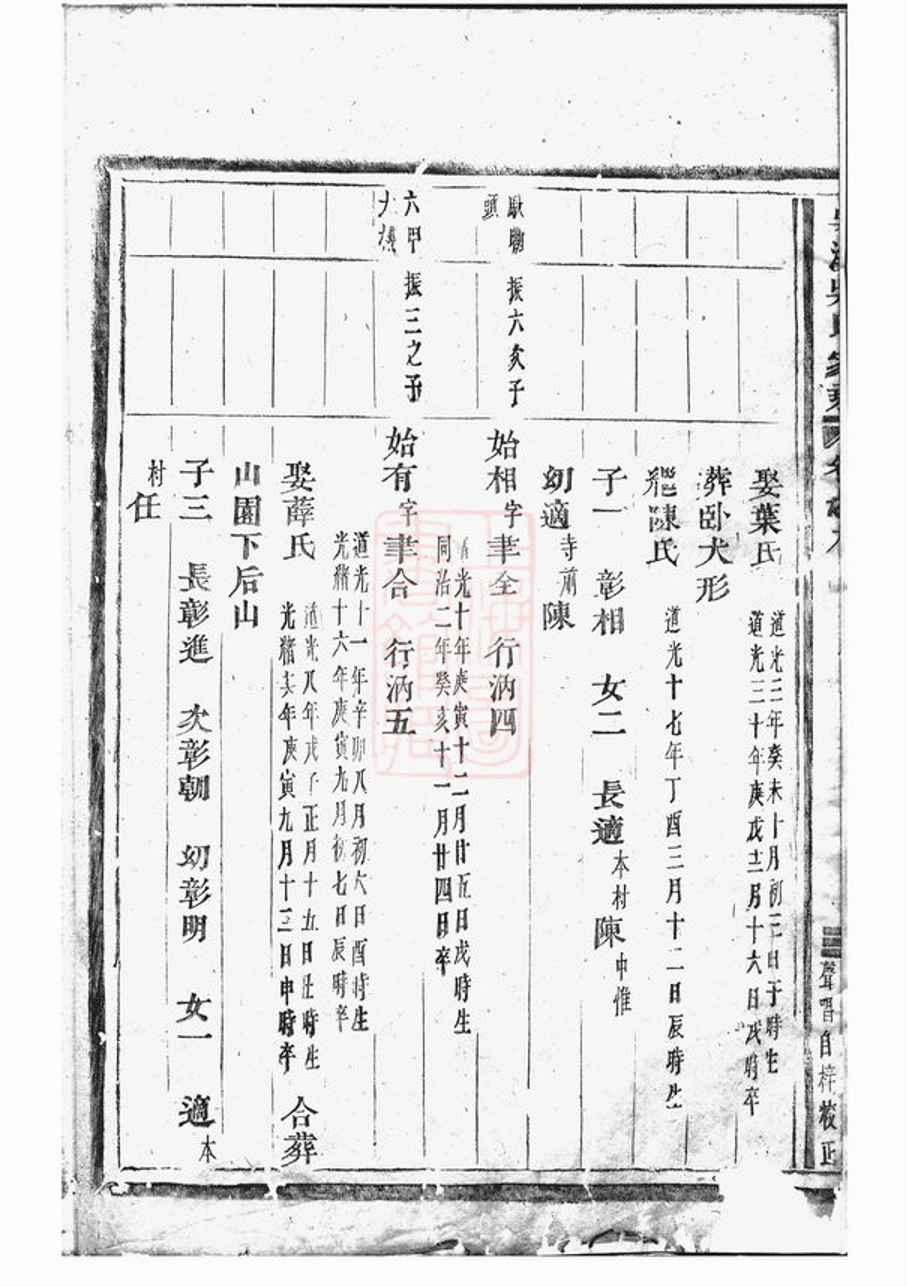 娶葉氏
道光三年癸未十月初三日子時生
道光三十年庚戌十二月十六日戌時卒
葬卧犬形
繼陳氏
道光十七年丁酉三月十二日辰時生
子一 彰相 女二 長適本村陳中惟
幼適寺前陳
頭
振六亥子
始相字聿全 行洒四
道光十年庚寅十二月廿五日戌時生
同治二年癸亥十一月廿四日卒
六甲
振三之子
始有字聿合 行洒五
道光十一年辛卯八月初六日酉時生
光緒十六年庚寅九月初七日辰時卒
娶薛氏
道光八年戊子正月十五日丑時生
光緒年庚寅九月十三日申時卒
合葬
山園下后山
子三 長彰進 次彰朝 幼彰明 女一 適本
村任
聲唱自梓校正